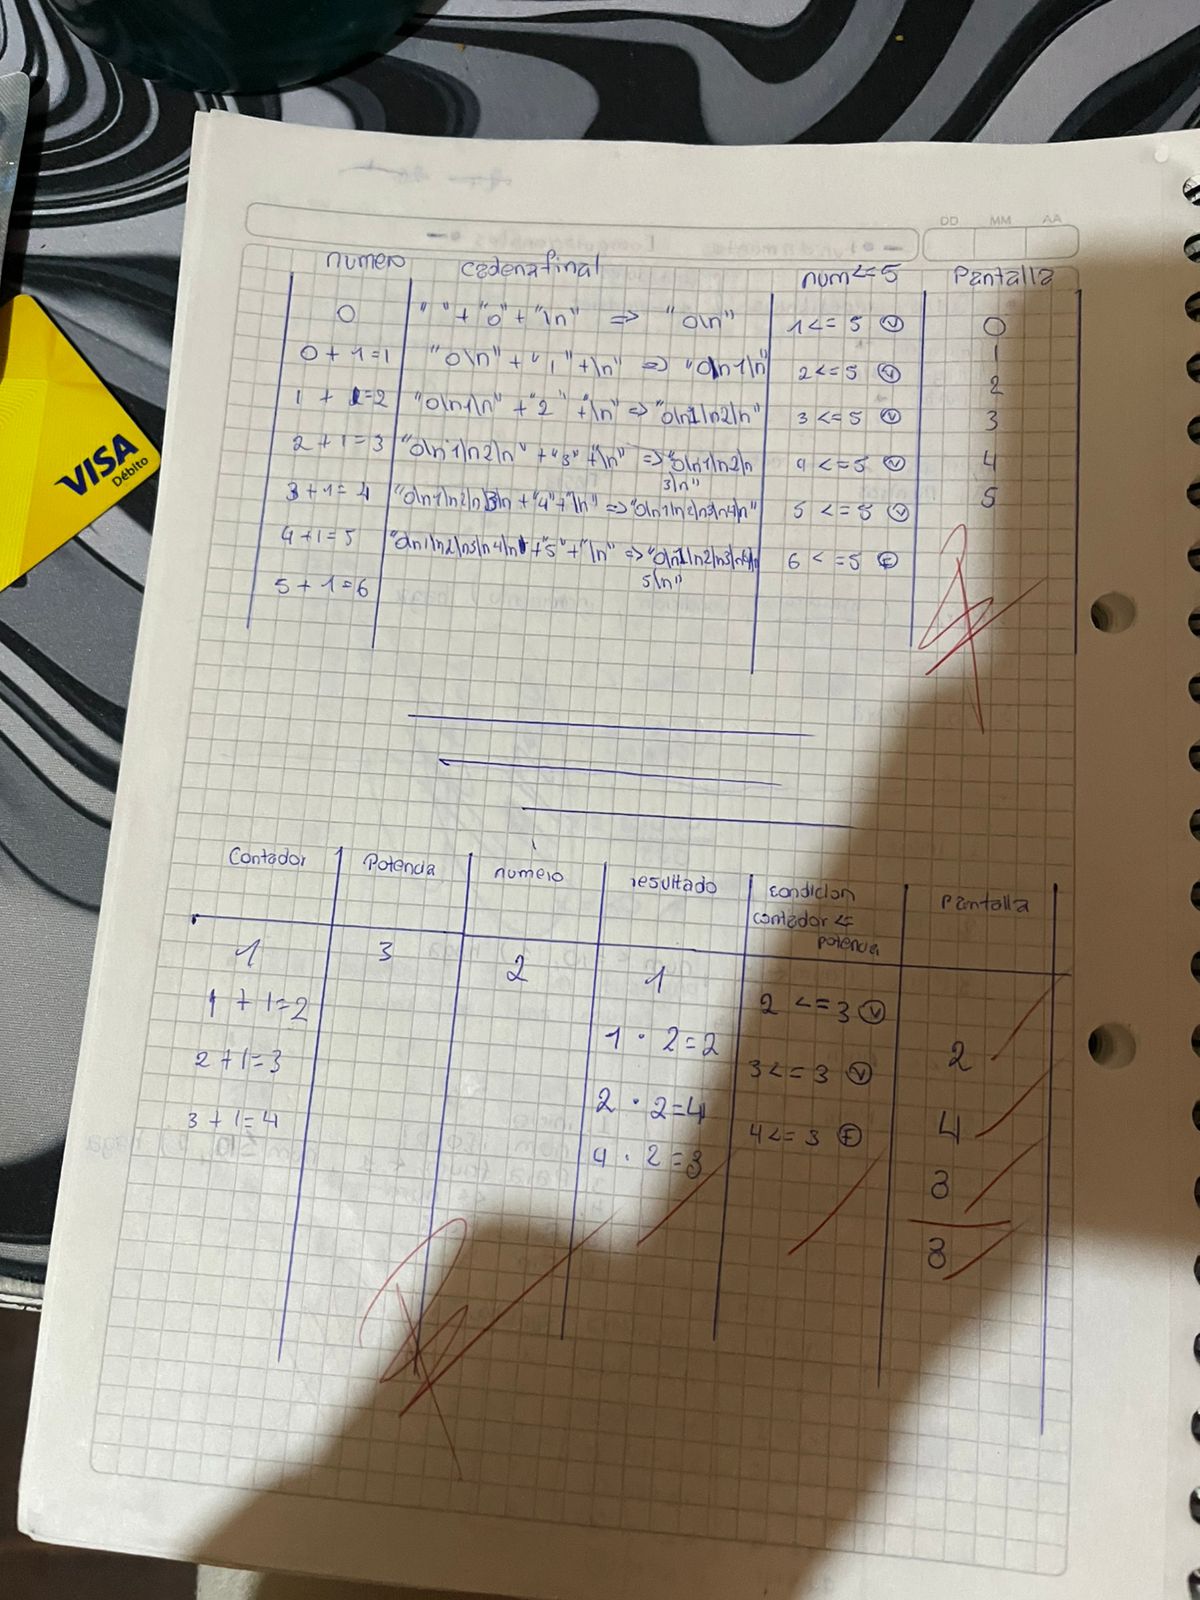 DD MM AA
numero cadenafinal num<=5 Pantalla
0 " " + "0" + "\n" => "0\n" 1 <= 5 V 0
0 + 1 = 1 "0\n" + "1" + \n" => "0\n1\n" 2 <= 5 V 1
1 + 1 = 2 "0\n1\n" + "2" + "\n" => "0\n1\n2\n" 3 <= 5 V 2
2 + 1 = 3 "0\n1\n2\n" + "3" + \n" => "0\n1\n2\n 4 <= 5 V 3
3\n"
3 + 1 = 4 "0\n1\n2\n3\n + "4" + "\n" => "0\n1\n2\n3\n4\n" 5 <= 5 V 4
4 + 1 = 5 "0\n1\n2\n3\n4\n + "5" + "\n" => "0\n1\n2\n3\n4\n 6 <= 5 F 5
5\n"
5 + 1 = 6
VISA
Débito
Contador Potencia numero resultado condicion Pantalla
contador <=
potencia
1 3 2 1
1 + 1 = 2 2 <= 3 V
1 · 2 = 2 2
2 + 1 = 3 3 <= 3 V
2 · 2 = 4 4
3 + 1 = 4 4 <= 3 F
4 · 2 = 8 8
8